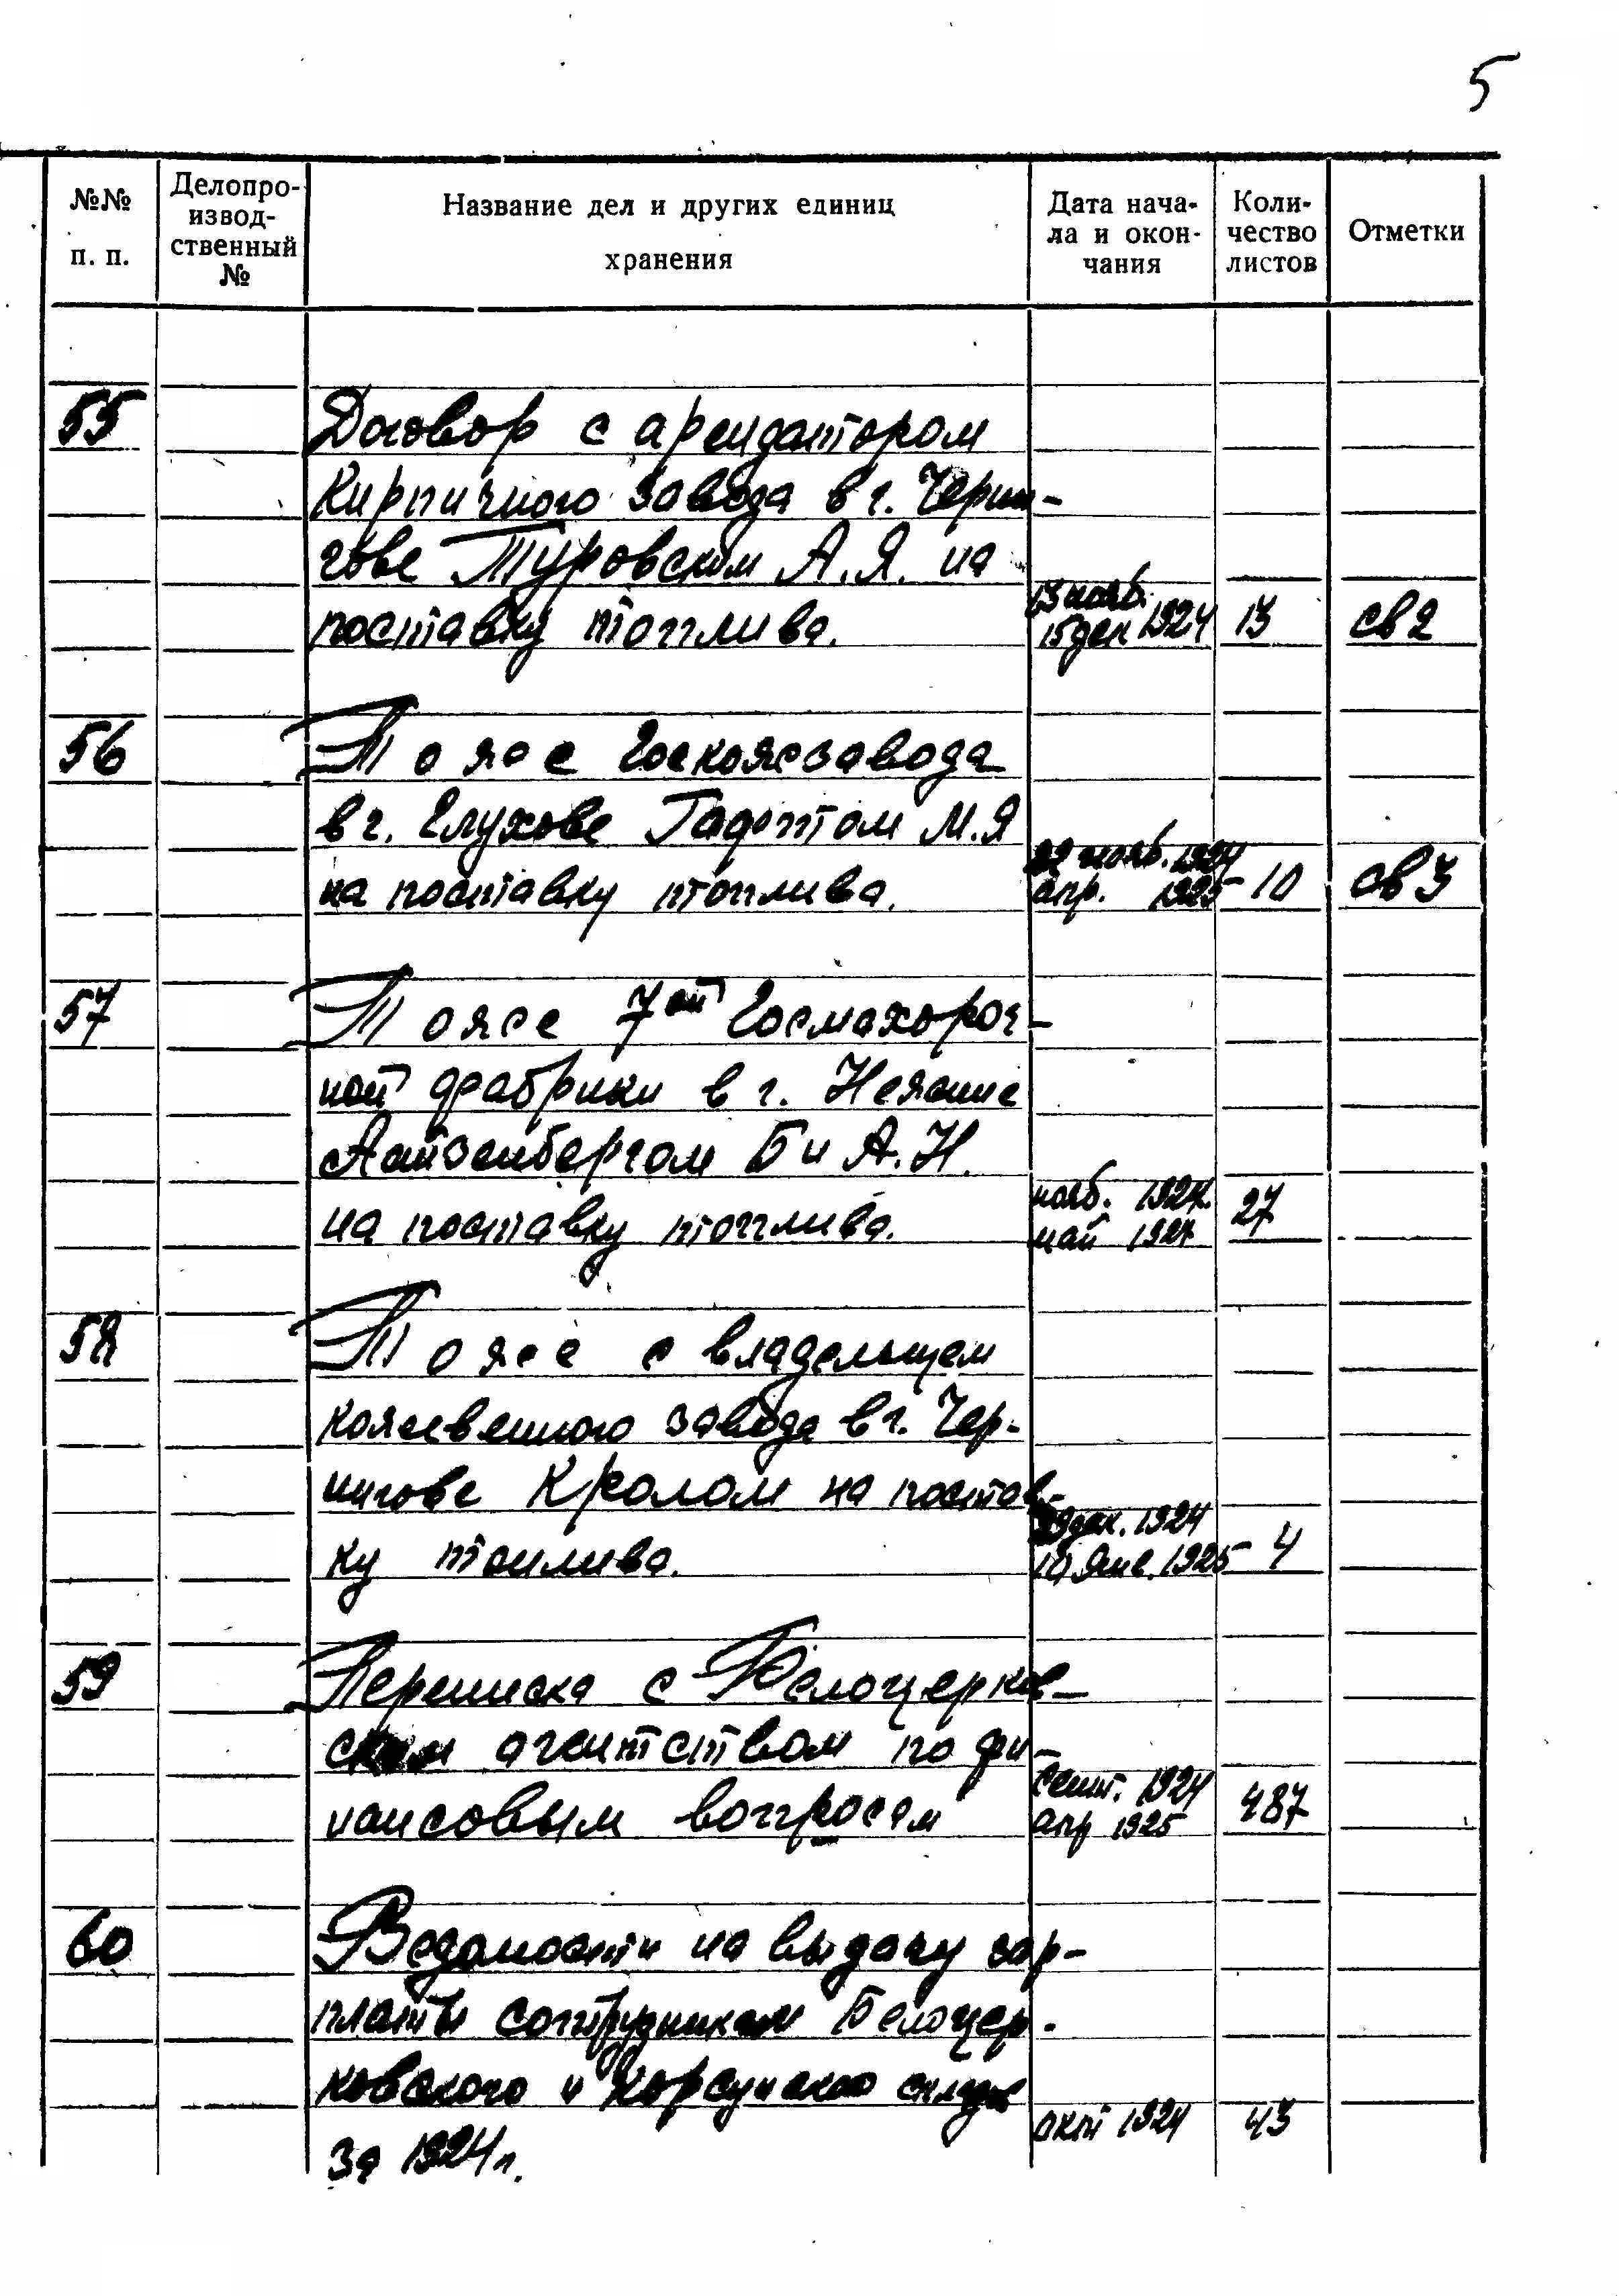 5
№№ п. п.
Делопро-
извод-
ственный
№
Название дел и других единиц
хранения
Дата нача-
ла и окон-
чания
Коли-
чество
листов
Отметки
55
Договор с арендатором
Кирпичного завода в г. Черни-
гове Туровским А.Я. на
поставку топлива.
13 нояб.
15 дек 1924
13
св 2
56
То же с Госкожзавода
в г. Глухове М.Я
на поставку топлива.
22 нояб. 1924
апр. 1925
10
св 3
57
То же 7ой Госмахороч-
ной фабрики в г. Нежине
Айзенбергом Б и А.Н.
на поставку топлива.
нояб. 1924
май 1924
27
58
То же с владельцем
кожевенного завода в г. Чер-
нигове Кролом на постав-
ку топлива.
дек. 1924
10 Янв. 1925
4
59
Переписка с Белоцерков-
ским агентством по фи-
нансовым вопросам
сент. 1924
апр 1925
487
60
Ведомости на выдачу зар-
платы сотрудникам Белоцер-
ковского и Корсунского складов
за 1924 г.
окт 1924
43